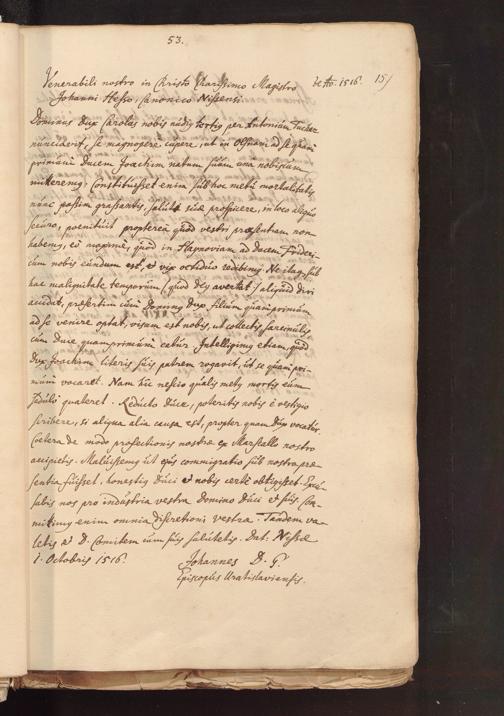 53.
Venerabili nostro in Christo Charissimo Magistro de Ao. 1516. 151
Johanni Hesso, Canonico Nissensi
Dominus Dux Carolus nobis nudiq tertiq per Antonium
nunciavit, se magnopere cupere, ut in Olsnam ad se quam
primum ducem Joachim natum suum una nobiscum
mitteremq. Constituisset enim sub hoc metu mortalitatis
nunc passim grassantis, saluti suae prospicere, in loco aliquo
securo, poenituit propterea quod vestri praesentiam non
habemq, eo maxime, quod in Haynoviam ad ducem Frideri-
cum nobis eundum est, et vix octiduo redibimq. Ne itaq sub
hac malignitate temporum (quod Deq avertat) aliquid diri
accidat, praesertim cum Dominq Dux filium quamprimum
ad se venire optat, visum est nobis, ut collectis sarcinulis
cum duce quamprimum eatur. Intelligimq etiam, quod
Dux Joachim literis suis patrem rogavit, ut se quam pri-
mum vocaret. Nam hic nescio qualis metq mortis eum
seduli quateret. Reducto duce, poteritis nobis e vestigio
scribere, si aliqua alia causa est, propter quam Dux vocatur.
Coetera de modo profectionis nostrae ex Marstallo nostro
accipietis. Maluissemq ut ejus commigratio sub nostra prae-
sentia fuisset, honestiq duci et nobis certe obtigisset. Excu-
sabis nos pro industria vestra domino duci et suis. Com-
mittimq enim omnia discretioni vestrae. Tandem va-
letis et D. Comitem cum suis salutetis. Dat. Nyssae
1. Octobris 1516.
Johannes D. G.
Episcopus Wratislaviensis.